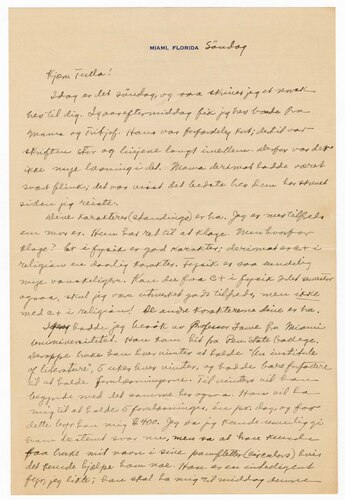 MIAMI, FLORIDA Söndag
Kjære Tulla!
Idag er det söndag, og saa skriver jeg et norsk
brev til dig. Igaar eftermiddag fik jeg brev baade fra
Mama og Fritjof. Hans var forfærdelig kort; det til var
skriften stor og linjene langt imellem. Derfor var det
ikke mye læsning i det. Mama derimot hadde været
svært flink; det var visst det bedste brev hun har skrevet
siden jeg reiste.
Dine karakterer (standings) er bra. Jeg er mer tilfreds
enn mor er. Hun har ret til at klage. Men hvorfor
klage? C+ i fysik er god karakter; derimot er C+ i
religion en daarlig karakter. Fysik er saa uendelig
mye vanskeligere. Kan du faa C+ i fysik 2det semester
ogsaa, skal jeg være utmerket godt tilfreds, men ikke
med C+ i religion! De andre karakterene dine er bra.
Igaar hadde jeg besök av Professor Lowe fra Miami
universitetet. Han kom hit fra Penn State College.
Deroppe bruker han hver vinter at holde "An institute
of literature", 5 uker hver vinter, og hadde bare forfattere
til at holde forelæsningerne. Til vinteren vil han
begynde med det samme her ogsaa. Han vil ha
mig til at holde 5 forelæsninger, en pr. dag, og for
dette byr han mig $400. Jeg
ham bestemt svar nu, men sa at han kunde
faa bruke mit navn i sine pamfletter (circulars) hvis
det kunde hjelpe ham noe. Han er en intelligent
fyr, jeg likte; han skal ha mig til middag denne